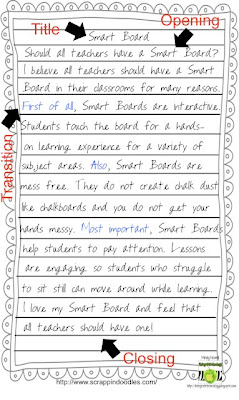 Title
Opening
Smart Board
Should all teachers have a Smart Board?
I believe all teachers should have a Smart
Board in their classrooms for many reasons.
First of all, Smart Boards are interactive.
Students touch the board for a hands-
on learning experience for a variety of
subject areas. Also, Smart Boards are
mess free. They do not create chalk dust
like chalkboards and you do not get your
hands messy. Most important, Smart Boards
help students to pay attention. Lessons
are engaging so students who struggle
to sit still can move around while learning.
I love my Smart Board and feel that
all teachers should have one!
Transition
Closing
http://www.scrappindoodles.com/